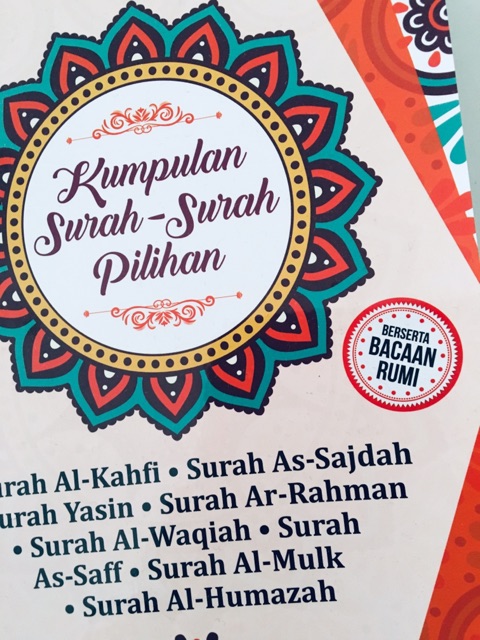 Kumpulan
Surah-Surah
Pilihan
BERSERTA
BACAAN
RUMI
Al-Kahfi • Surah As-Sajdah
Yasin • Surah Ar-Rahman
• Surah Al-Waqiah • Surah
As-Saff • Surah Al-Mulk
• Surah Al-Humazah